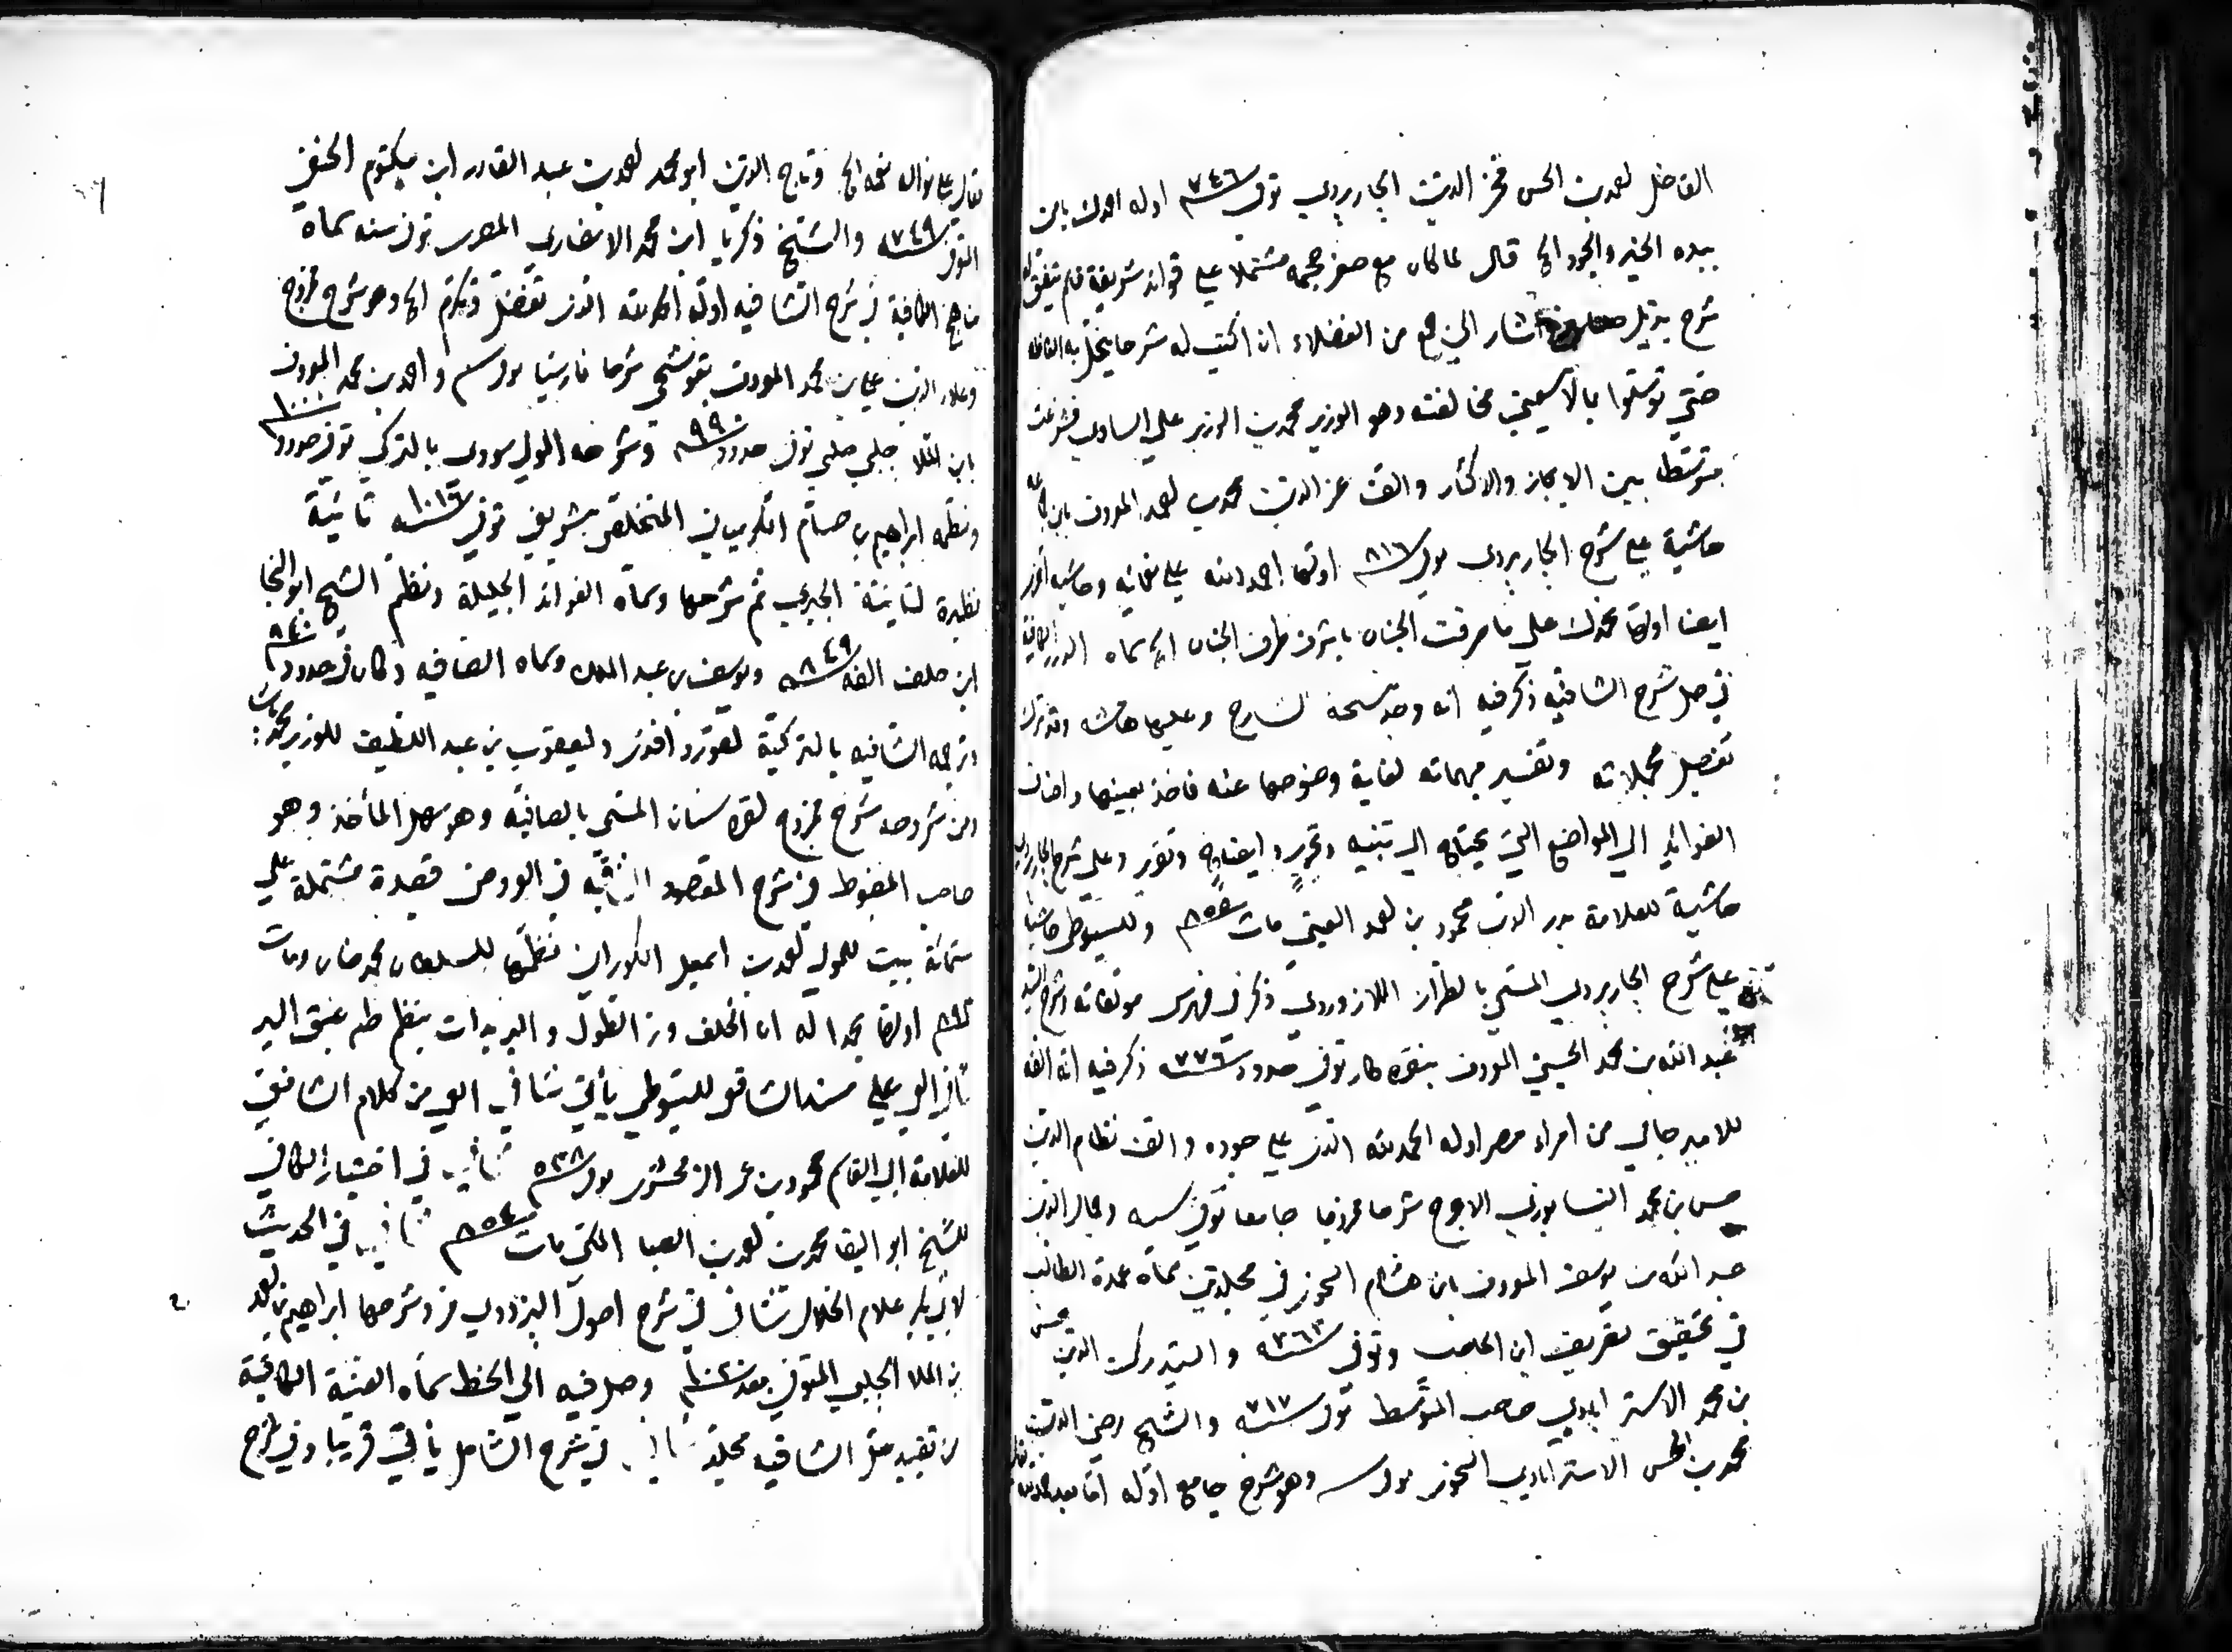 الفاضل احمد بن الحسن فخر الدين الجاربردي توفى سنه ٧٤٦ اوله احمدك يا من
بيده الخير والجود الخ قال لما كان مع صغر حجمه مشتملا على فوائد شريفة فلم يتفق له
شرح يذيل اشار الي جمع من الفضلاء ان اكتب له شرحا ينحل به الفاظه
حتى توسلوا بالا يسعني مخالفته وهو الوزير محمد بن الوزير علي الساوي فشرعت
متوسطا بين الايجاز والاكثار والف عز الدين محمد بن احمد المعروف بابن جماعه
حاشية على شرح الجاربردي توفى سنه ٨١٦ اولها احمد الله على نعمائه وحاشيه اخرى
ايضا اولها نحمدك على ما صرفت الجنان باشرف ظرف الجنان الخ سماه الدرر الكافية
في حل شرح الشافية ذكر فيه انه وجد نسخة الشارح وعليها حاشيه وقد ترك
تفصيل مجملاته وتفسير مبهماته لغاية وضوحها عنه فاخذ بعينها واضاف
الفوائد الى المواضع التي يحتاج الى تنبيه وتحرير وايضاح وتقرير وعلى شرح الجاربردي
حاشية للعلامة بدر الدين محمود بن احمد العيني مات سنه ٨٥٥ وللسيوطي حاشية
على شرح الجاربردي المسمى بالطراز اللازوردي ذكر في فهرس مولفاته وشرح السيد
عبد الله بن محمد الحسيني المعروف بنقره كار توفى حدود سنه ٧٧٦ ذكر فيه انه الفه
للامير جاني من امراء مصر اوله الحمد لله الذى على جوده والف نظام الدين
حسن بن محمد النيسابوري الاعرج شرحا ممزوجا جامعا توفى سنه وجمال الدين
عبد الله بن يوسف المعروف بابن هشام النحوي في مجلدين سماه عمدة الطالب
في تحقيق تصريف ابن الحاجب وتوفى سنه ٧٦٢ والسيد ركن الدين حسن
بن محمد الاسترابادي صاحب المتوسط توفى سنه ٧١٧ والشيخ رضي الدين
محمد بن الحسن الاسترابادي النحوي توفى سنه وهو شرح جامع اوله اما بعد حمد الله تعالى
تعالى على نواله نعمه الخ وتاج الدين ابو محمد احمد بن عبد القادر ابن مكتوم الحنفي
المتوفى سنه ٧٤٩ والشيخ زكريا ابن محمد الانصاري المصرى توفى سنه سماه
مناهج الكافية في شرح الشافيه اوله الحمد لله الذى تفضل وتكرم الخ وهو شرح ممزوج
وعلاء الدين علي بن محمد المعروف بقوشجي شرحا فارسيا توفى سنه واحمد بن محمد المعروف
بابن الملا چلبي حلبي توفى حدود سنه ٩٩٠ وشرحه المولى سودى بالتركي توفى حدود سنه ١٠٠٠
ونظمه ابراهيم بن حسام الكرمياني المتخلص بشريفي توفي سنه ١٠١٦ تائية
نظيرة لتائية الجبري ثم شرحها وسماه الفوائد الجليلة ونظم الشيخ ابو النجا
ابن خلف الفه سنه ٨٤٩ ويوسف بن عبد الملك وسماه الصافيه وكان في حدود سنه ٨٤٠
وترجمه الشافيه بالتركية لقورد افندى وليعقوب بن عبد اللطيف للوزير محمد پاشا
ومن شروحه شرح ممزوج لقره سنان المسمى بالصافيه وهو سهل المأخذ وهو
صاحب المضبوط في شرح المقصود الشافيه في العروض قصيدة مشتملة على
ستمائة بيت للمولى احمد بن اسمعيل الكوراني نظمها للسلطان محمد خان ومات
سنه ٨٩٣ اولها بحمد اله الخلف ذى الطول والبر
شافى العي على مسند الشافعي للسيوطي يأتي شافى العي من كلام الشافعي
للعلامة ابي القاسم محمود بن عمر الزمخشري توفى سنه ٥٣٨ شافى في اختيار الكافي
للشيخ ابو البقا محمد بن احمد بن الضيا المكي مات سنه ٨٥٤ شافى في الحديث
لابي بكر غلام الخلال شافى في شرح اصول البزدوي وشرحها ابراهيم بن احمد
بن الملا الجلبي المتوفى بعد سنه وصل فيه الى الخط سماه الغنية الكافية
من تقييد متن الشافيه مجلد شافى في شرح الشامل يأتي قريبا وفي شرح